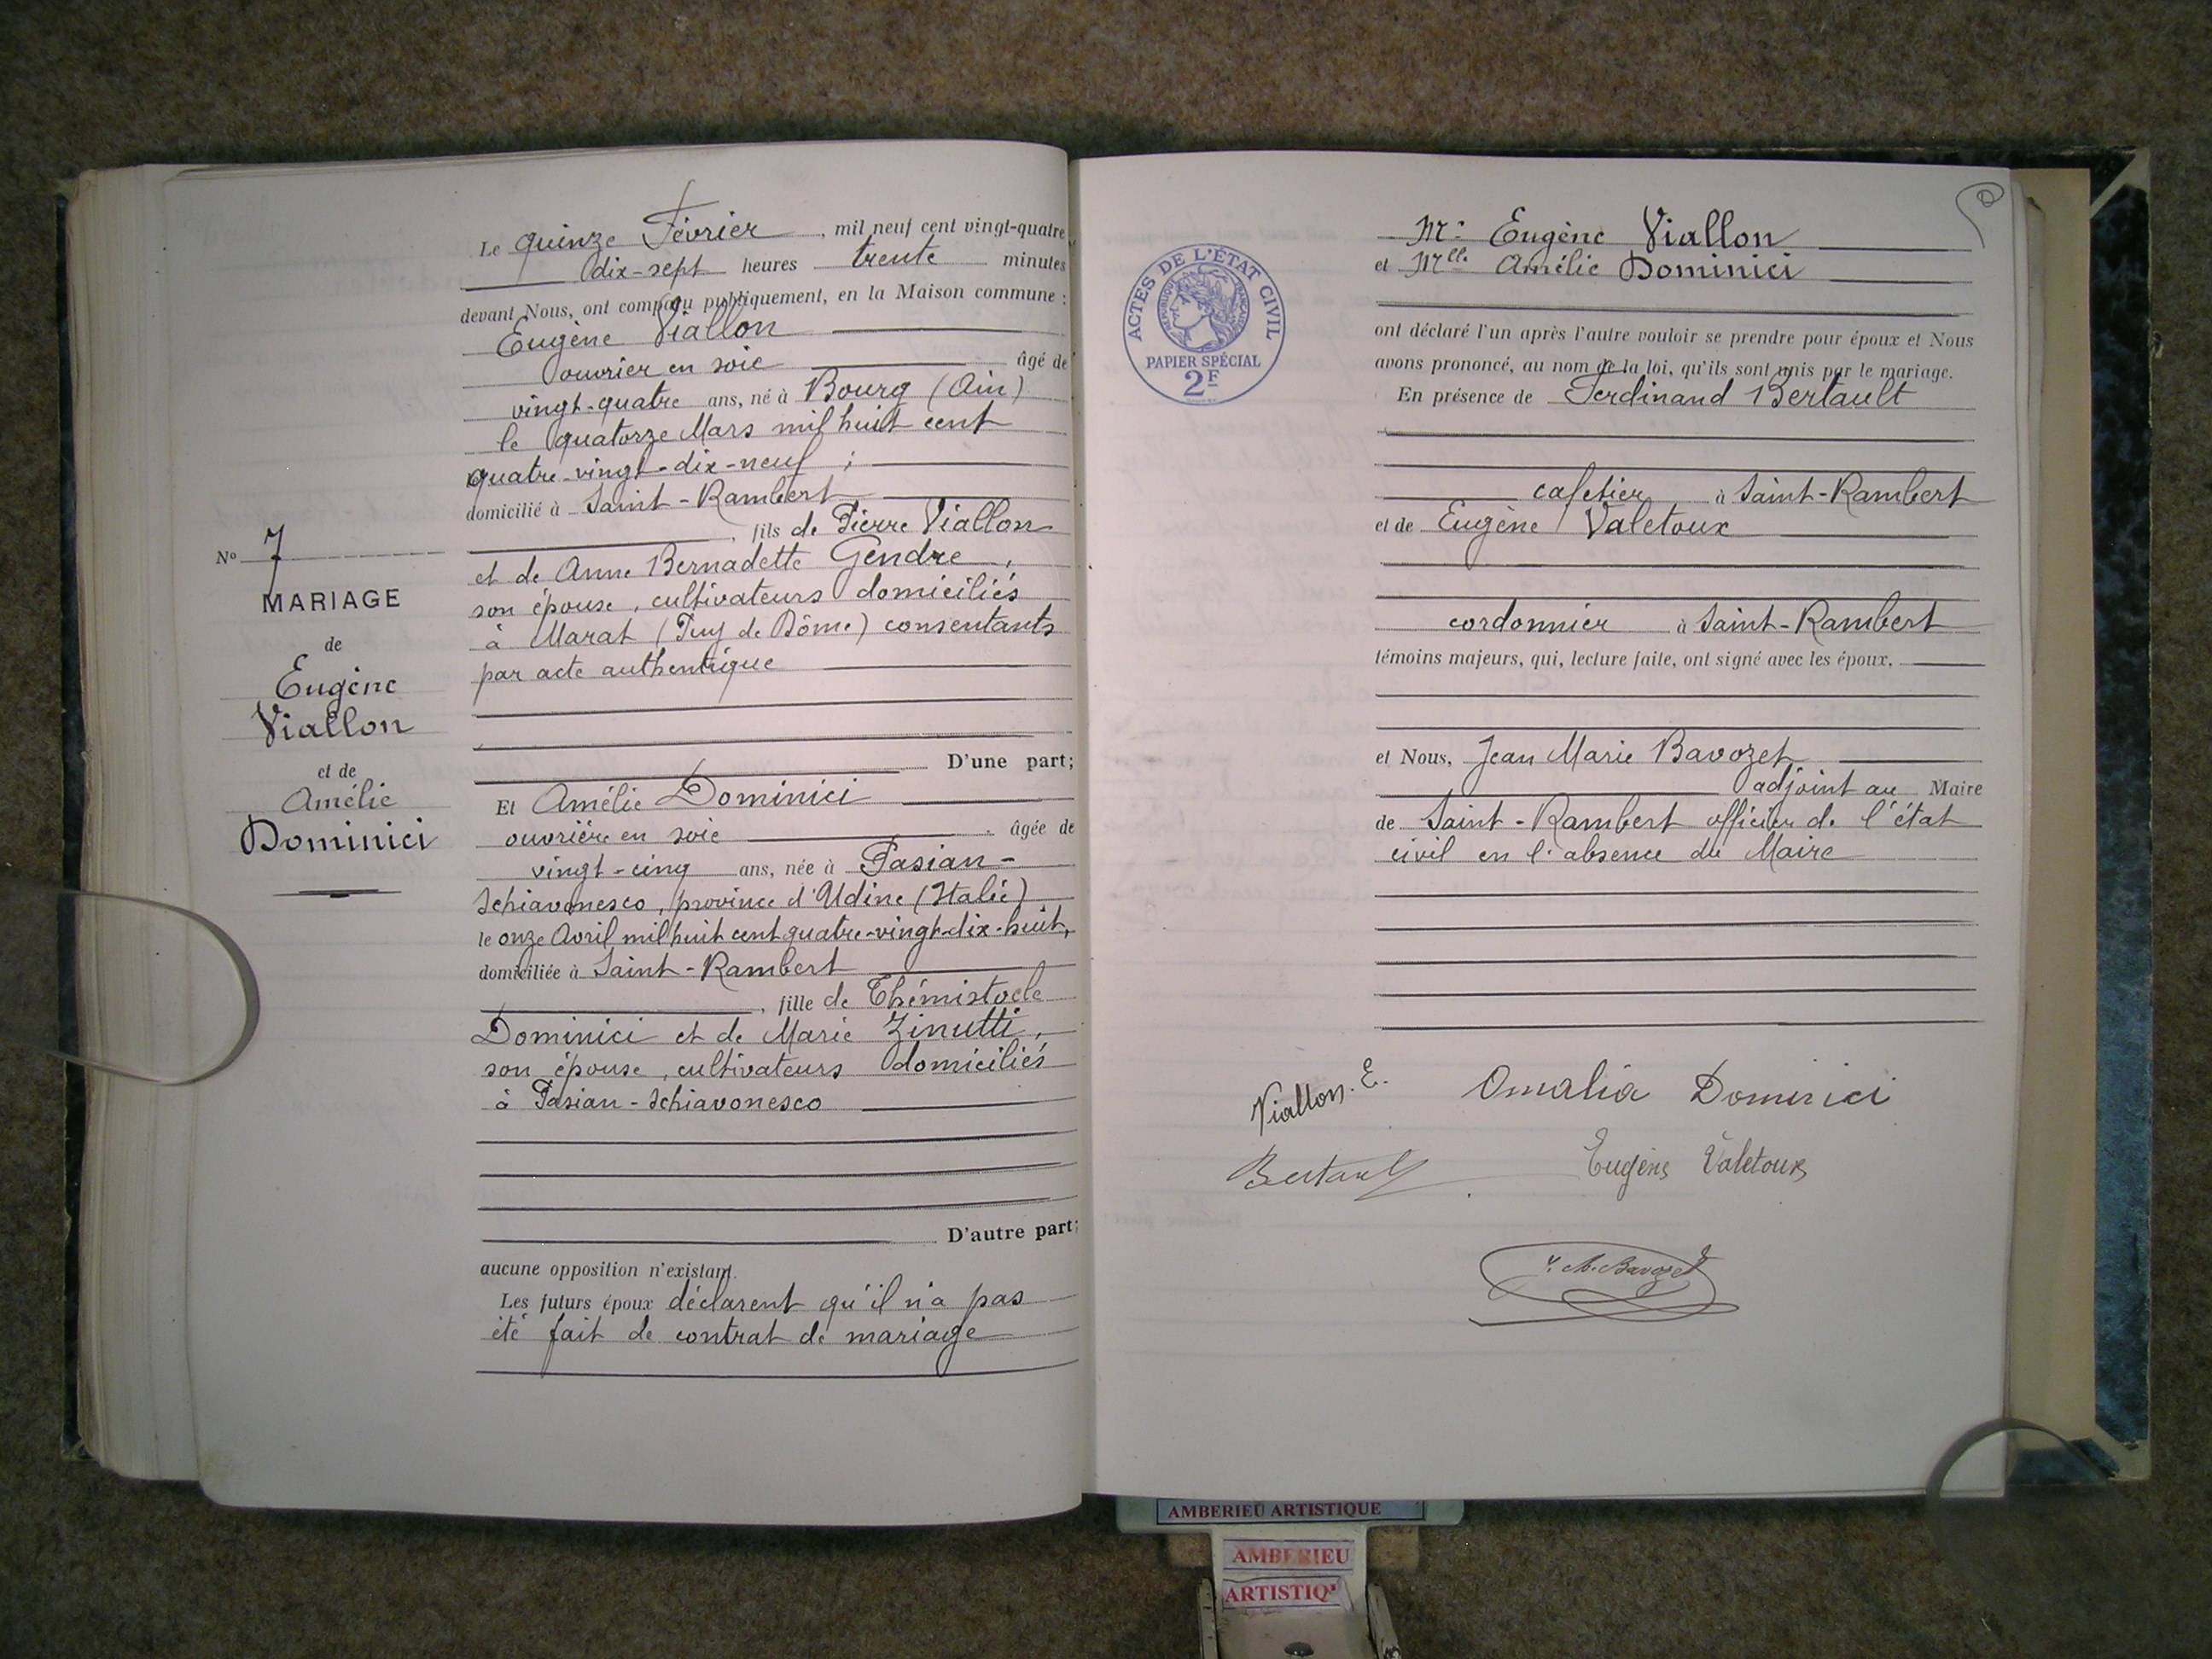 Le quinze Février, mil neuf cent vingt-quatre,
dix-sept heures trente minutes
devant Nous, ont comparu publiquement, en la Maison commune :
Eugène Viallon
ouvrier en soie âgé de
vingt-quatre ans, né à Bourg (Ain)
le quatorze Mars mil huit cent
quatre-vingt-dix-neuf ;
domicilié à Saint-Rambert
, fils de Pierre Viallon
et de Anne Bernadette Gendre,
son épouse, cultivateurs domiciliés
à Marat (Puy de Dôme) consentants
par acte authentique
D'une part;
Nº 7
MARIAGE
de
Eugène
Viallon
et de
Amélie
Dominici
Et Amélie Dominici
ouvrière en soie âgée de
vingt-cinq ans, née à Pasian-
Schiavonesco, province d'Udine (Italie)
le onze Avril mil huit cent quatre-vingt-dix-huit,
domiciliée à Saint-Rambert
, fille de Thémistocle
Dominici et de Marie Zinutti,
son épouse, cultivateurs domiciliés
à Pasian-Schiavonesco
D'autre part;
aucune opposition n'existant.
Les futurs époux déclarent qu'il n'a pas
été fait de contrat de mariage
ACTES DE L'ÉTAT CIVIL
RÉPUBLIQUE FRANÇAISE
PAPIER SPÉCIAL
2F
Mr Eugène Viallon
et Mlle Amélie Dominici
ont déclaré l'un après l'autre vouloir se prendre pour époux et Nous
avons prononcé, au nom de la loi, qu'ils sont unis par le mariage.
En présence de Ferdinand Bertault
cafetier à Saint-Rambert
et de Eugène Valetoux
cordonnier à Saint-Rambert
témoins majeurs, qui, lecture faite, ont signé avec les époux,
et Nous, Jean Marie Bavozet
adjoint au Maire
de Saint-Rambert officier de l'état
civil en l'absence du Maire
Viallon. E. Omalia Dominici
Bertault Eugène Valetoux
Bavozet
AMBERIEU ARTISTIQUE
AMBERIEU
ARTISTIQ